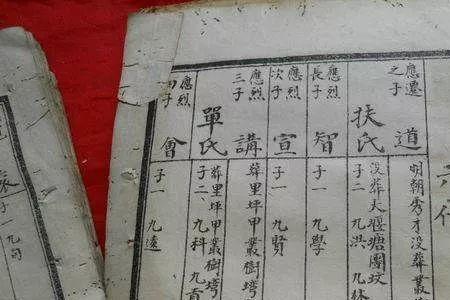 六代
應遷之子
道
明朝秀才没葬叢
扶氏
没葬大堰塘團坟
子二 九洪 九
應烈長子
智
子一 九學
應烈次子
宣
子一 九賢
應烈三子
講
葬里坪甲叢樹塆
單氏
葬里坪甲叢樹塆
子二 九科 九
應烈四子
會
子一 九遠
子一 九